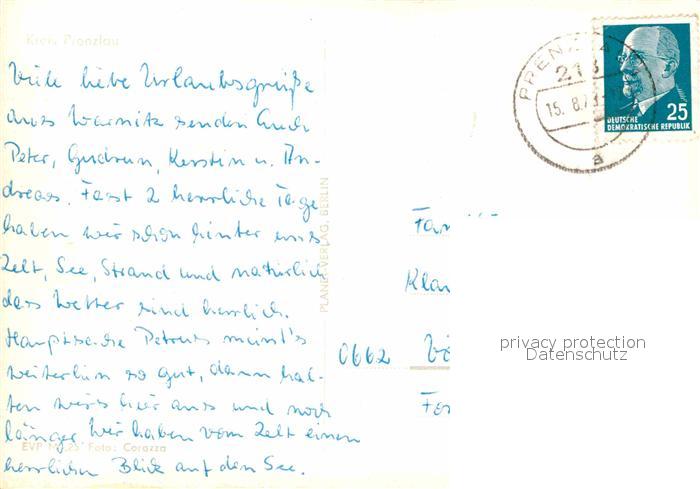 Kreis Prenzlau
Viele liebe Urlaubsgrüße
aus Warnitz senden Euch
Peter, Gudrun, Kerstin u. An-
dreas. Fast 2 herrliche Tage
haben wir schon hinter uns
Zelt, See, Strand und natürlich
das Wetter sind herrlich.
Hauptsache Petrus meint's
weiterhin so gut, dann hal-
ten wir's hier aus und noch
länger. Wir haben vom Zelt einen
herrlichen Blick auf den See.
EVP Foto: Corazza
PLANET-VERLAG, BERLIN
PRENZLAU
213
15. 8. 73
a
DEUTSCHE
DEMOKRATISCHE REPUBLIK
25
Fam
Klau
0662
privacy protection
Datenschutz